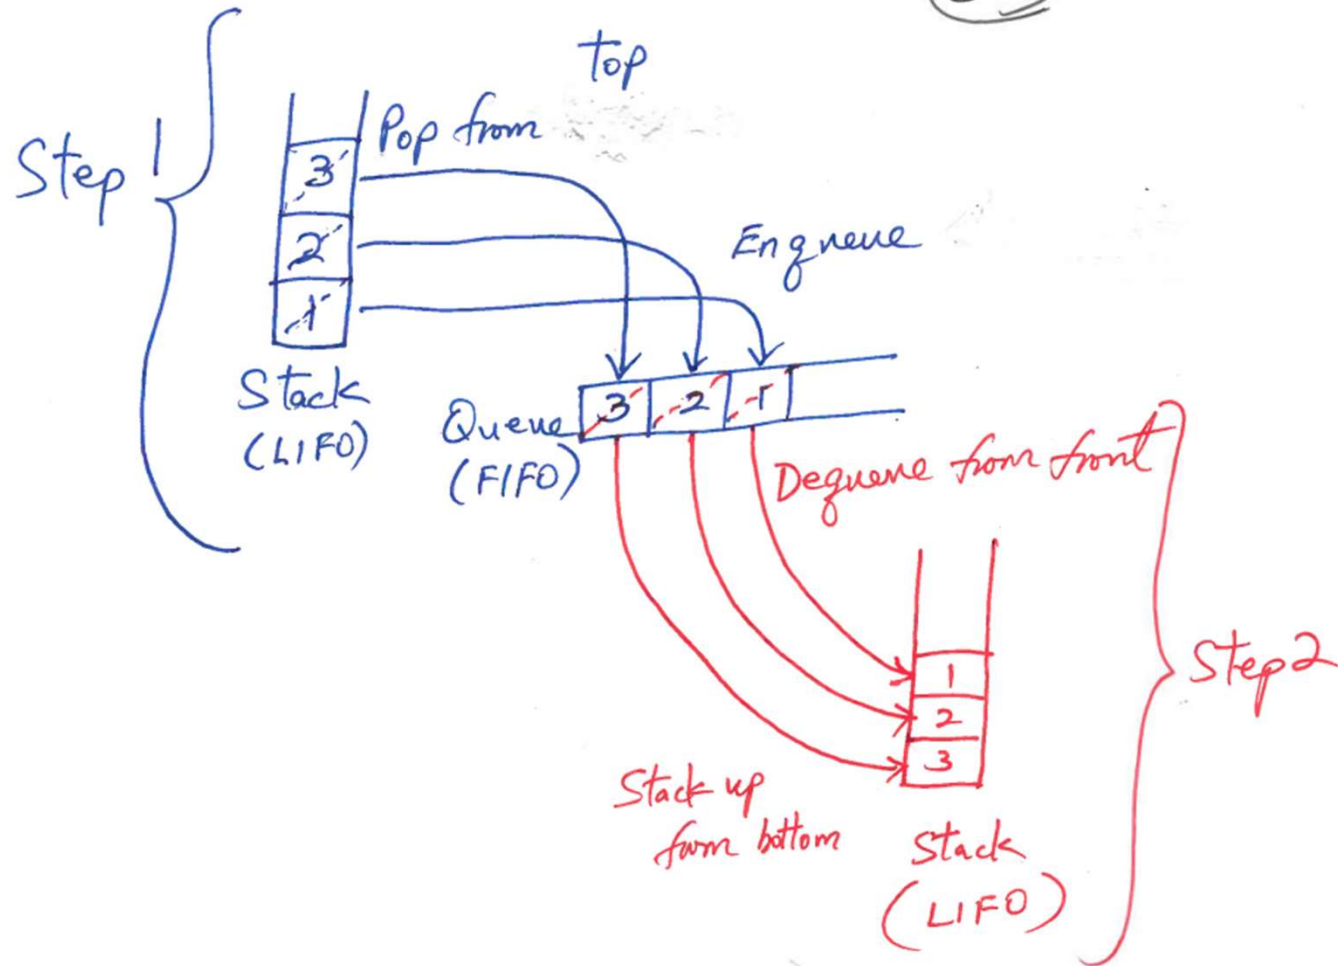 Step 1
top
Pop from
3
2
1
Stack
(LIFO)
Enqueue
Queue
(FIFO)
3 2 1
Dequeue from front
Step 2
1
2
3
Stack up
from bottom
Stack
(LIFO)